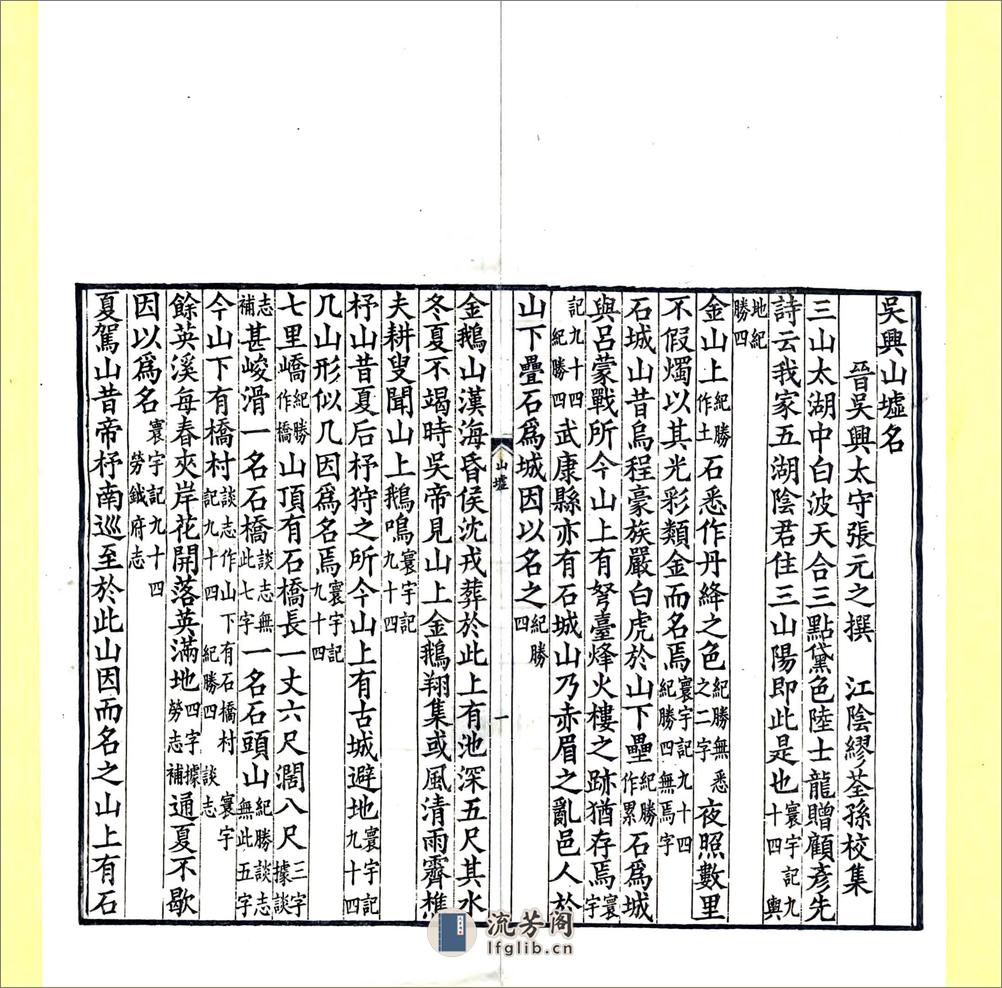 吳興山墟名
晉吳興太守張元之撰　江陰繆荃孫校集
三山太湖中白波天合三點黛色陸士龍贈顧彥先
詩云我家五湖陰君住三山陽即此是也寰宇記九十四輿
地紀勝四
金山上紀勝作土石悉作丹絳之色紀勝無悉之二字夜照數里
不假燭以其光彩類金而名焉寰宇記九十四紀勝四無焉字
石城山昔烏程豪族嚴白虎於山下壘紀勝作累石爲城
與呂蒙戰所今山上有弩臺烽火樓之跡猶存焉寰宇
記九十四紀勝四武康縣亦有石城山乃赤眉之亂邑人於
山下疊石爲城因以名之紀勝四
山墟
一
金鵝山漢海昏侯沈戎葬於此上有池深五尺其水
冬夏不竭時吳帝見山上金鵝翔集或風清雨霽樵
夫耕叟聞山上鵝鳴寰宇記九十四
杼山昔夏后杼狩之所今山上有古城避地寰宇記九十四
几山形似几因爲名焉寰宇記九十四
七里嶠紀勝作橋山頂有石橋長一丈六尺濶八尺三字據談
志補甚峻滑一名石橋談志無此七字一名石頭山紀勝談志無此五字
今山下有橋村談志作山下有石橋村寰宇記九十四紀勝四談志
餘英溪每春夾岸花開落英滿地四字據勞志補通夏不歇
因以爲名寰宇記九十四勞鉞府志
夏駕山昔帝杼南巡至於此山因而名之山上有石
流芳阁
lfglib.cn